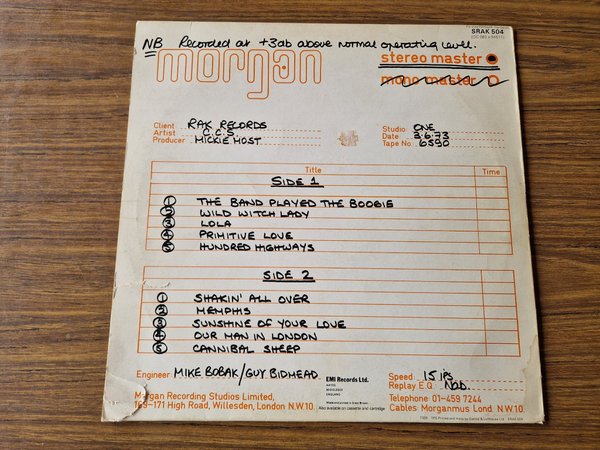 SRAK 504
NB Recorded at +3db above normal operating level.
morgan
stereo master
mono master
Client RAK RECORDS
Artist C.C.S.
Producer MICKIE MOST
Studio ONE
Date 3.6.73
Tape No. 6590
Title Time
SIDE 1
1 THE BAND PLAYED THE BOOGIE
2 WILD WITCH LADY
3 LOLA
4 PRIMITIVE LOVE
5 HUNDRED HIGHWAYS
SIDE 2
1 SHAKIN' ALL OVER
2 MEMPHIS
3 SUNSHINE OF YOUR LOVE
4 OUR MAN IN LONDON
5 CANNIBAL SHEEP
Engineer MIKE BOBAK/GUY BIDMEAD
EMI Records Ltd.
HAYES MIDDLESEX ENGLAND
Also available on cassette and cartridge
Speed 15 IPS
Replay E.Q. NAB.
Morgan Recording Studios Limited,
169-171 High Road, Willesden, London N.W.10.
Telephone 01-459 7244
Cables Morganmus Lond N.W.10.